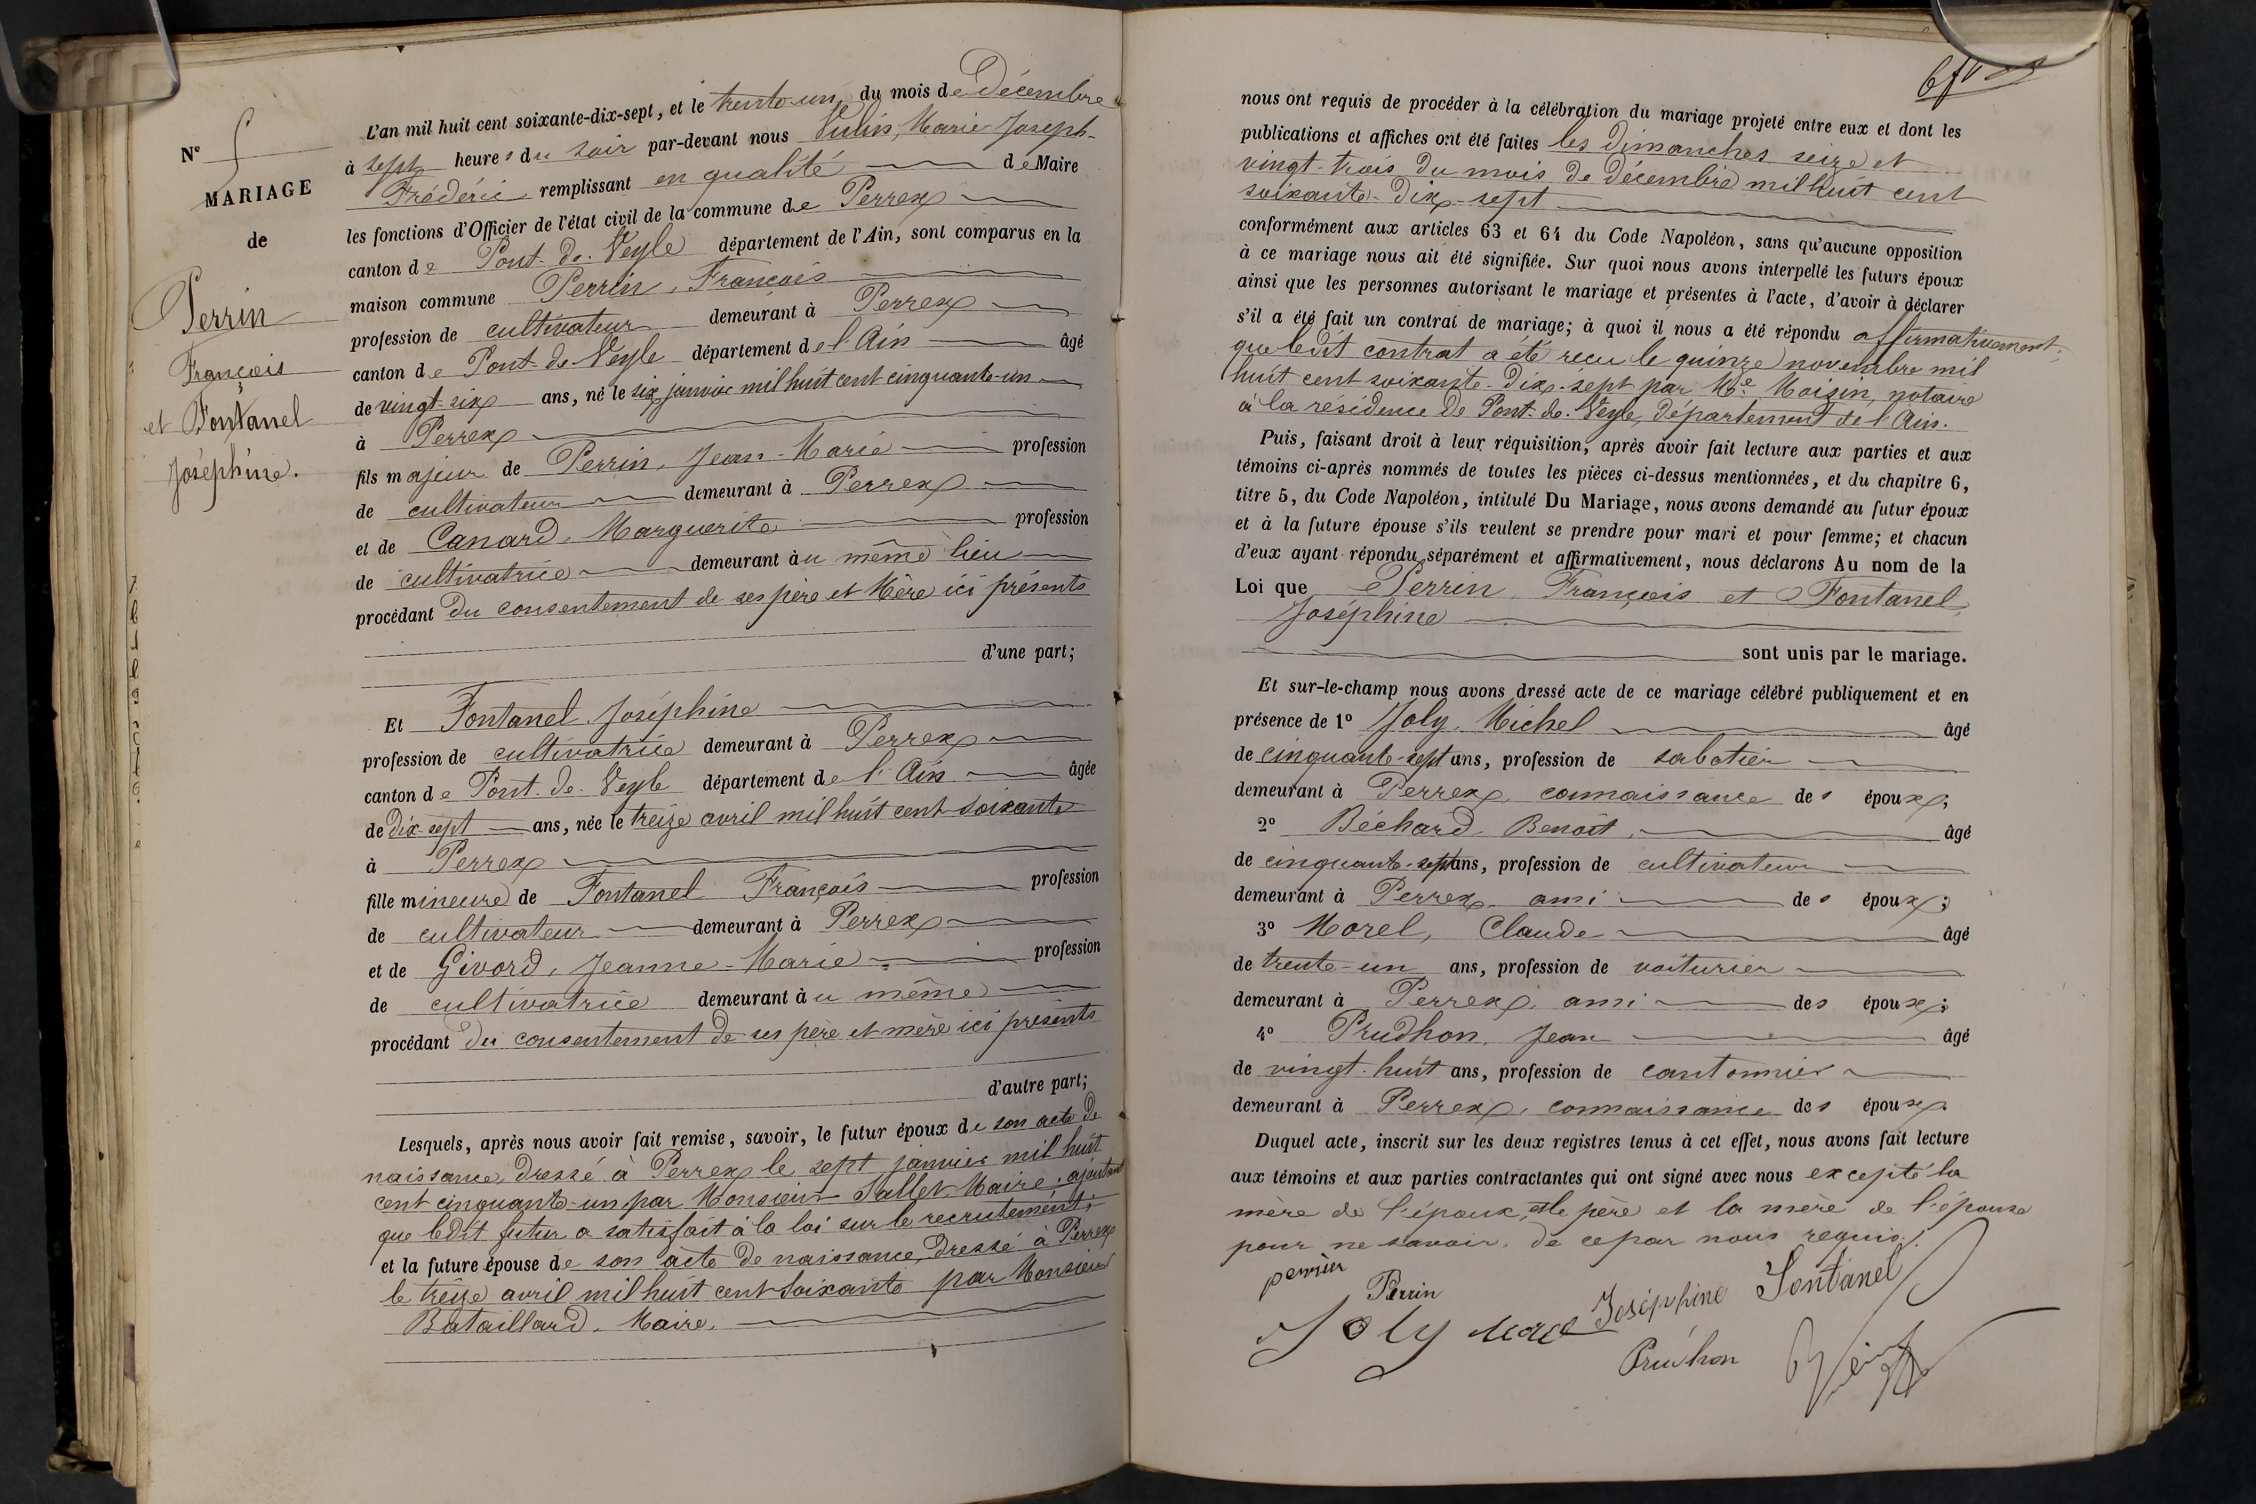 N°
MARIAGE
de
Perrin
François
et Fontanel
Joséphine.
L'an mil huit cent soixante-dix-sept, et le trente-un du mois de Décembre
à sept heures du soir par-devant nous Marie Joseph-
Frédéric remplissant en qualité de Maire
les fonctions d'Officier de l'état civil de la commune de Perrex
canton de Pont-de-Veyle département de l'Ain, sont comparus en la
maison commune Perrin, François
profession de cultivateur demeurant à Perrex
canton de Pont-de-Veyle département de l'Ain âgé
de vingt-six ans, né le six janvier mil huit cent cinquante-un
à Perrex
fils majeur de Perrin, Jean-Marie profession
de cultivateur demeurant à Perrex
et de Canard, Marguerite profession
de cultivatrice demeurant au même lieu
procédant du consentement de ses père et Mère ici présents
d'une part;
Et Fontanel Joséphine
profession de cultivatrice demeurant à Perrex
canton de Pont-de-Veyle département de l'Ain âgée
de dix-sept ans, née le treize avril mil huit cent soixante
à Perrex
fille mineure de Fontanel François profession
de cultivateur demeurant à Perrex
et de Givord, Jeanne-Marie profession
de cultivatrice demeurant au même
procédant du consentement de ses père et mère ici présents
d'autre part;
Lesquels, après nous avoir fait remise, savoir, le futur époux de son acte de
naissance, dressé à Perrex le sept janvier mil huit
cent cinquante-un par Monsieur Sallet, Maire, ajoutant
que ledit futur a satisfait à la loi sur le recrutement;
et la future épouse de son acte de naissance, dressé à Perrex
le treize avril mil huit cent soixante par Monsieur
Bataillard, Maire.
nous ont requis de procéder à la célébration du mariage projeté entre eux et dont les
publications et affiches ont été faites les dimanches seize et
vingt-trois du mois de décembre mil huit cent
soixante-dix-sept
conformément aux articles 63 et 64 du Code Napoléon, sans qu'aucune opposition
à ce mariage nous ait été signifiée. Sur quoi nous avons interpellé les futurs époux
ainsi que les personnes autorisant le mariage et présentes à l'acte, d'avoir à déclarer
s'il a été fait un contrat de mariage; à quoi il nous a été répondu affirmativement;
que ledit contrat a été reçu le quinze novembre mil
huit cent soixante-dix-sept par Me Moisin, notaire
à la résidence de Pont-de-Veyle, département de l'Ain.
Puis, faisant droit à leur réquisition, après avoir fait lecture aux parties et aux
témoins ci-après nommés de toutes les pièces ci-dessus mentionnées, et du chapitre 6,
titre 5, du Code Napoléon, intitulé Du Mariage, nous avons demandé au futur époux
et à la future épouse s'ils veulent se prendre pour mari et pour femme; et chacun
d'eux ayant répondu séparément et affirmativement, nous déclarons Au nom de la
Loi que Perrin François et Fontanel,
Joséphine
sont unis par le mariage.
Et sur-le-champ nous avons dressé acte de ce mariage célébré publiquement et en
présence de 1° Joly, Michel âgé
de cinquante-sept ans, profession de sabatier
demeurant à Perrex, connaissance des époux;
2° Béchard, Benoit, âgé
de cinquante-sept ans, profession de cultivateur
demeurant à Perrex, ami des époux;
3° Morel, Claude âgé
de trente-un ans, profession de voiturier
demeurant à Perrex, ami des époux;
4° Prudhon, Jean âgé
de vingt-huit ans, profession de cantonnier
demeurant à Perrex, connaissance des époux
Duquel acte, inscrit sur les deux registres tenus à cet effet, nous avons fait lecture
aux témoins et aux parties contractantes qui ont signé avec nous excepté la
mère de l'époux, et le père et la mère de l'épouse
pour ne savoir, de ce par nous requis.
perrin
Perrin
Joly
Joséphine Fontanel
Prudhon